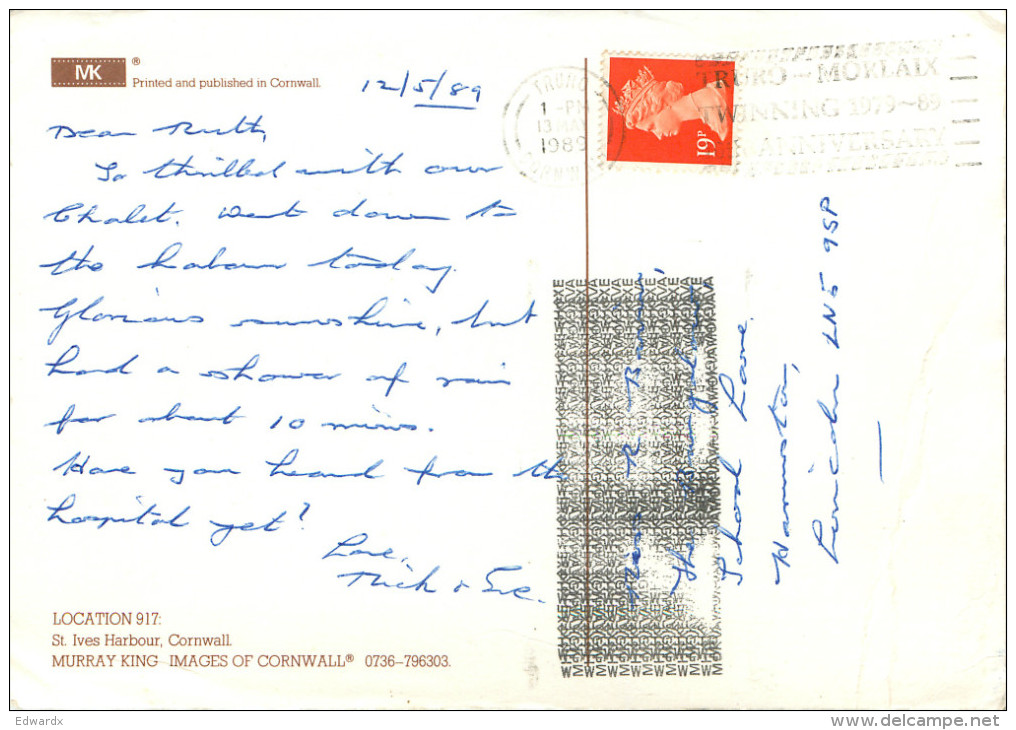 MK ®
Printed and published in Cornwall.
12/5/89
Dear Ruth,
So thrilled with our
Chalet. Went down to
the habour today.
Glorious sunshine, but
had a shower of rain
for about 10 mins.
Have you heard from the
hospital yet?
Love,
LOCATION 917:
St. Ives Harbour, Cornwall.
MURRAY KING IMAGES OF CORNWALL® 0736-796303.
TRURO
1 -PM
13 MAY
1989
CORNWALL
19P
TRURO - MORLAIX
TWINNING 1979~89
ANNIVERSARY
R.
The
School Lane.
Harmston,
Lincoln LN5 9SP
Edwardx
www.delcampe.net